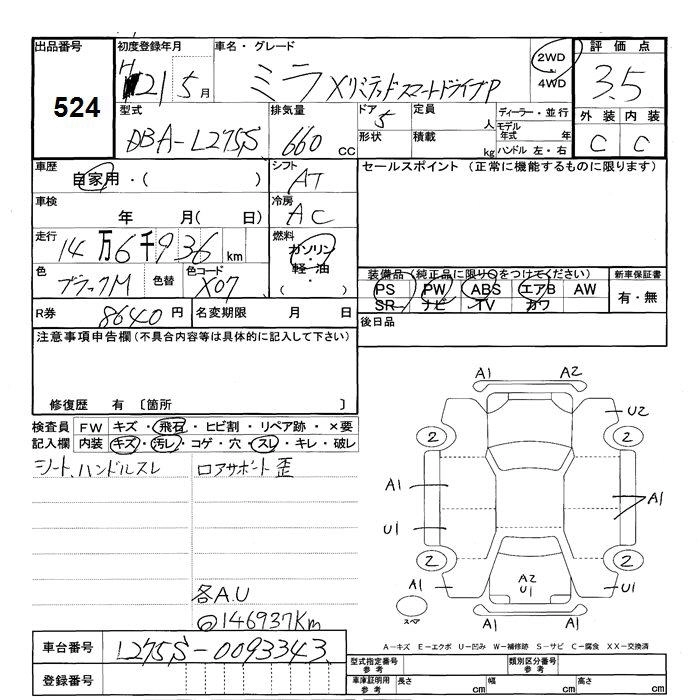 出品番号
524
初度登録年月
H21 5月
車名・グレード
ミラ XリミテッドスマートドライブP
2WD
4WD
評価点
3.5
型式
DBA-L275S
排気量
660 cc
ドア
5
定員
人
形状
積載
kg
ディーラー・並行
モデル年式 年
ハンドル 左・右
外装 内装
C C
車歴
自家用・( )
シフト
AT
セールスポイント (正常に機能するものに限ります)
車検
年 月( 日)
冷房
AC
走行
14万6千936km
燃料
ガソリン・軽油・( )
色
ブラックM
色替
色コード
X07
装備品(純正品に限り○をつけてください)
新車保証書
PS PW ABS エアB AW
SR ナビ TV カワ
有・無
R券
8640円
名変期限 月 日
後日品
注意事項申告欄(不具合内容等は具体的に記入して下さい)
修復歴 有 〔箇所 〕
検査員記入欄
FW キズ・飛石・ヒビ割・リペア跡・×要
内装 キズ・汚レ・コゲ・穴・スレ・キレ・破レ
シート、ハンドルスレ
ロアサポート歪
各A.U
@146937Km
A1 A2
U2
2 2
A1
A1
U1
2 2
A1
A2
U1
U1
スペア
A1 A1
A−キズ E−エクボ U−凹み W−補修跡 S−サビ C−腐食 XX−交換済
車台番号
L275S-0093343
登録番号
型式指定番号 参考
類別区分番号 参考
車庫証明用 参考
長さ cm
幅 cm
高さ cm